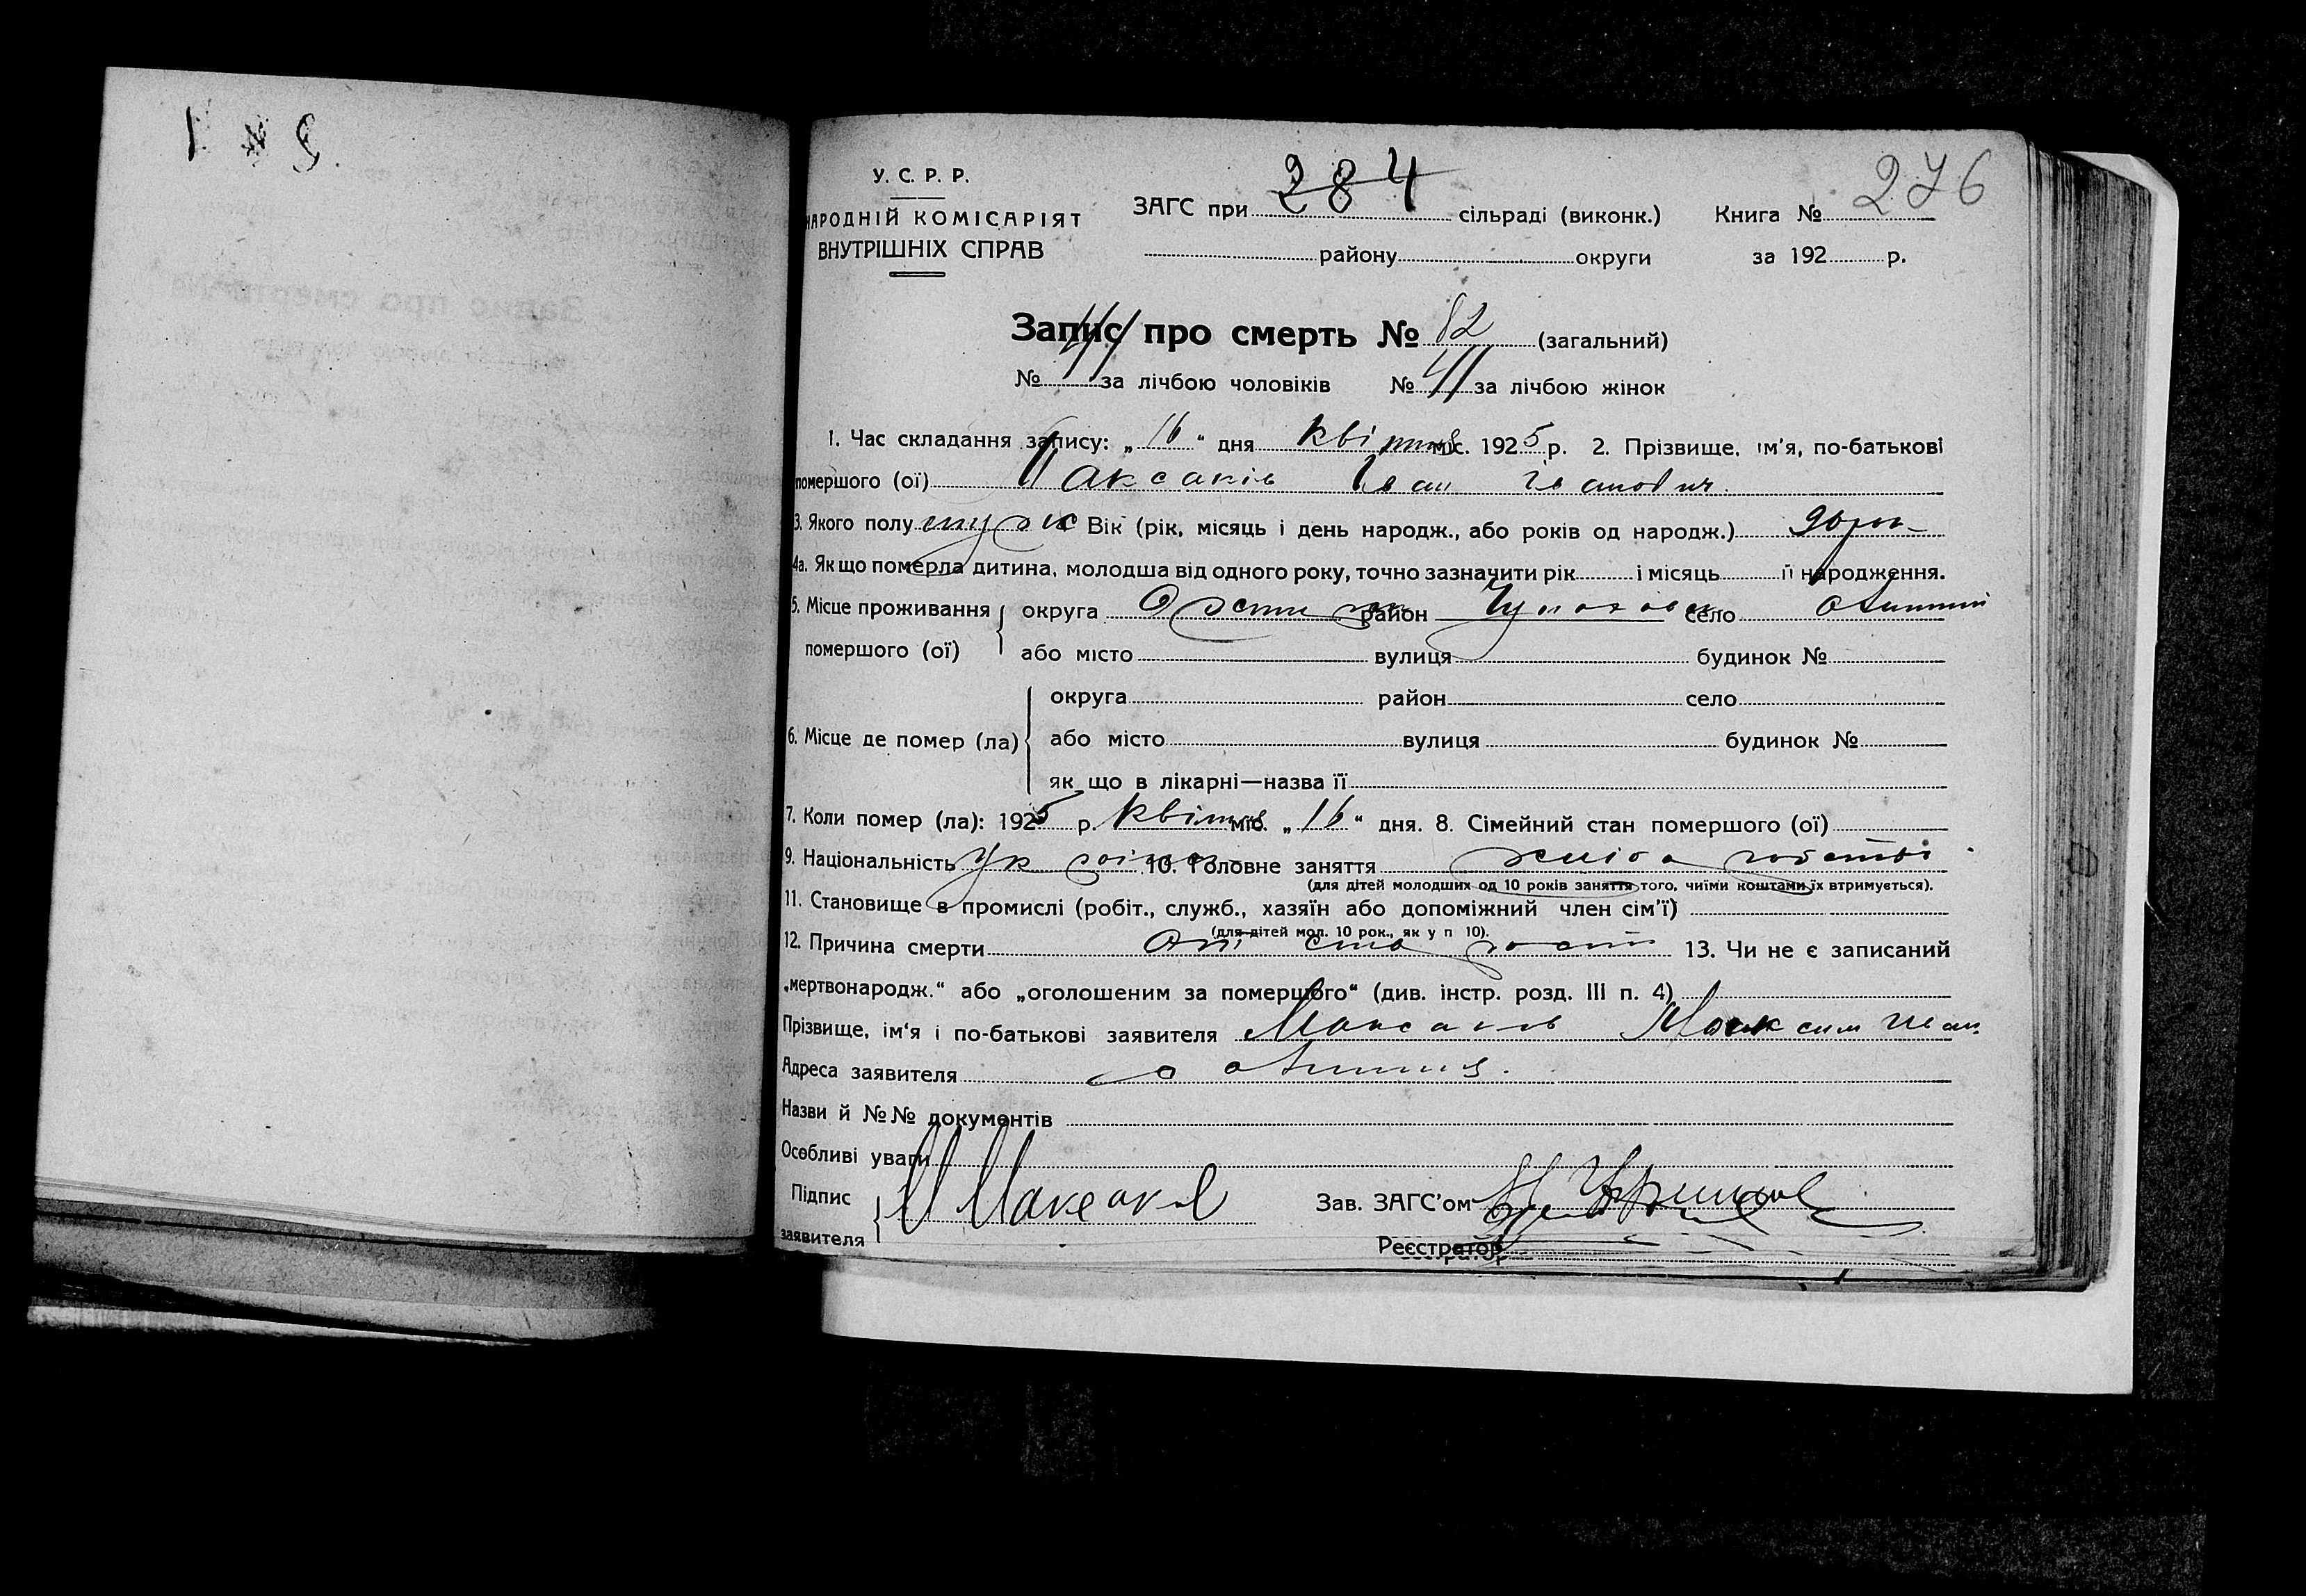 284
276
У. С. Р. Р.
НАРОДНІЙ КОМІСАРІЯТ
ВНУТРІШНІХ СПРАВ
ЗАГС при сільраді (виконк.) Книга №
району округи за 192 р.
Запис про смерть № 82 (загальний)
№ 41 за лічбою чоловіків № 41 за лічбою жінок
1. Час складання запису: „16“ дня квітня міс. 1925 р. 2. Прізвище, ім'я, по-батькові
помершого (ої) Максаків Іван Іванович
3. Якого полу муж Вік (рік, місяць і день народж., або років од народж.)
4а. Як що померла дитина, молодша від одного року, точно зазначити рік і місяць її народження.
5. Місце проживання округа район село
помершого (ої) або місто вулиця будинок №
округа район село
6. Місце де помер (ла) або місто вулиця будинок №
як що в лікарні—назва її
7. Коли помер (ла): 1925 р. квітня міс. „16“ дня. 8. Сімейний стан помершого (ої)
9. Національність 10. Головне заняття
(для дітей молодших од 10 років заняття того, чиїми коштами їх втримується).
11. Становище в промислі (робіт., служб., хазяїн або допоміжний член сім'ї)
(для дітей мол. 10 рок., як у п 10).
12. Причина смерти от старости 13. Чи не є записаний
„мертвонародж.“ або „оголошеним за помершого“ (див. інстр. розд. III п. 4)
Прізвище, ім'я і по-батькові заявителя Максаков Максим Іван
Адреса заявителя
Назви й №№ документів
Особливі уваги
Підпис М Максаков Зав. ЗАГС'ом
заявителя
Реєстратор